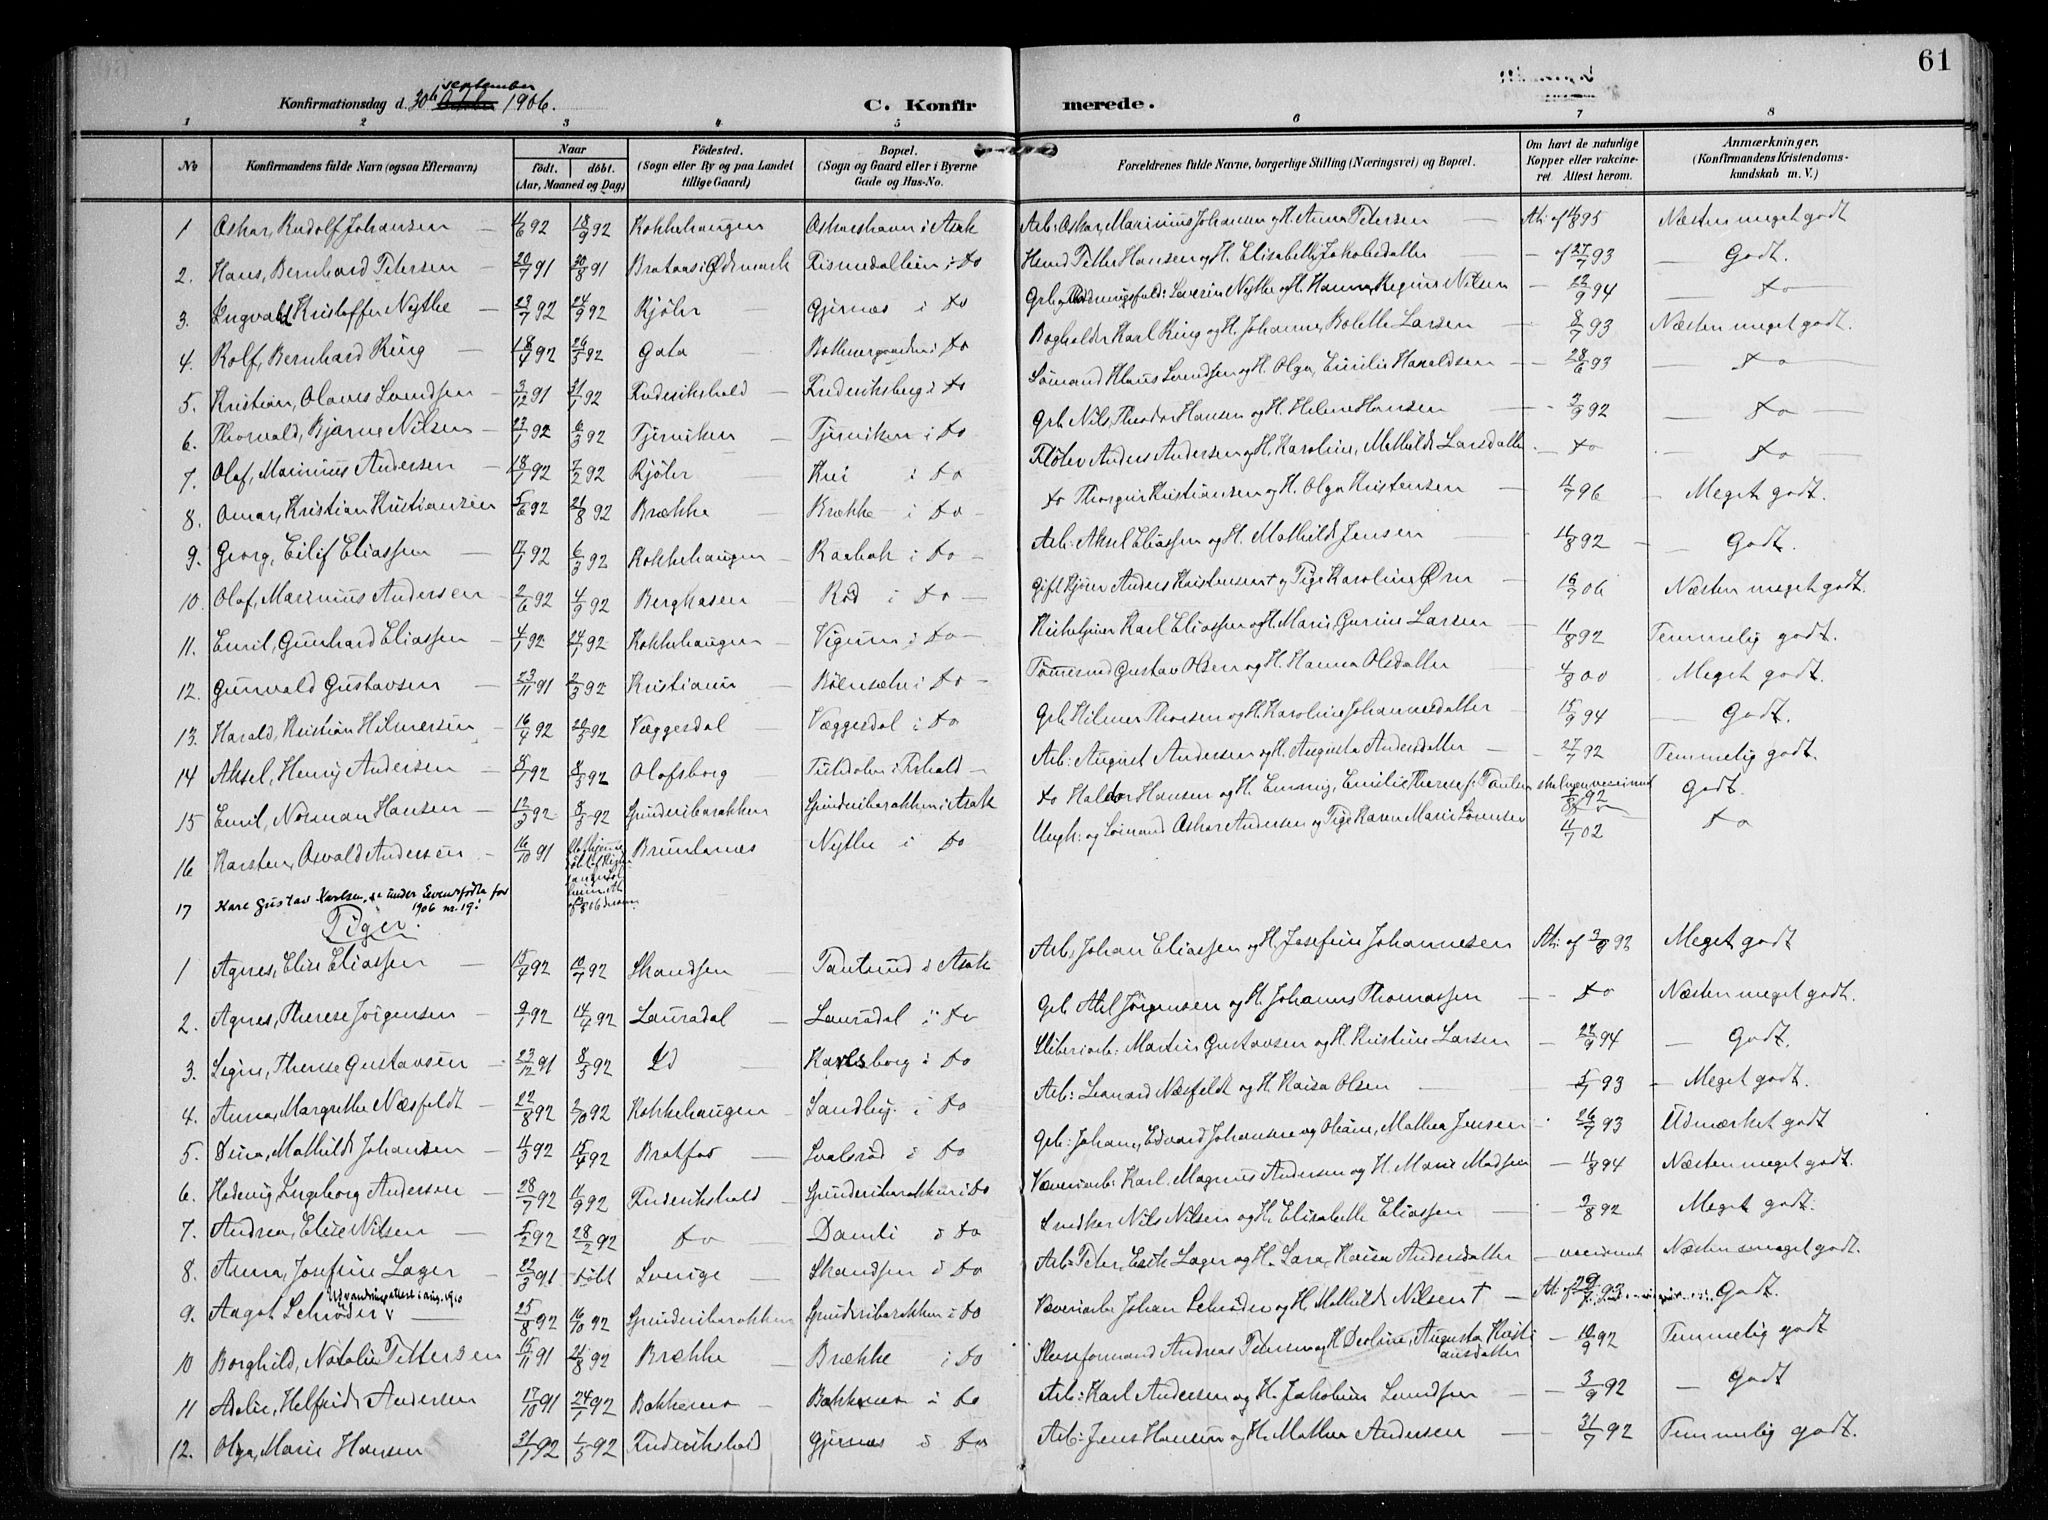 61
Konfirmationsdag d. 30th september October 1906.
C. Konfirmerede.
1 2 3 4 5 6 7 8
No Konfirmandens fulde Navn (ogsaa Efternavn) Naar født. døbt. (Aar, Maaned og Dag) Fødested. (Sogn eller By og paa Landet tillige Gaard) Bopæl. (Sogn og Gaard eller i Byerne Gade og Hus-No. Forældrenes fulde Navne, borgerlige Stilling (Næringsvei) og Bopæl. Om havt de naturlige Kopper eller vakcineret. Attest herom. Anmærkninger. (Konfirmandens Kristendomskundskab m. V.)
1 Oskar, Rudolf Johansen 4/6 92 18/9 92 Kokkehaugen Oskarshavn i Asak Arb: Oskar, Marinius Johansen og H. Anna Petersen At: af 4/8 95 Næsten meget godt
2. Hans, Bernhard Petersen 20/7 91 30/8 91 Brataas i Ødemark Rismedalheien i do Hmd Petter Hansen og H. Elisabeth Jakobsdatter af 27/7 93 Godt.
3. Ingvald Kristoffer Nythe 23/7 92 24/9 92 Kjøln Gjernæs i do Grb og Severin Nythe og H. Hanna Regine Nilsen 22/9 94 do
4. Rolf, Bernhard Ring 18/4 92 26/5 92 Gata i do Bogholder Karl Ring og H. Johanne, Bolette Larsen 8/7 93 Næsten meget godt.
5. Kristian, Olaves Svendsen 3/12 91 31/1 92 Frederikshald Frederiksberg i do Sømand Klaus Svendsen og H. Olga, Emilie Haraldsen 28/6 93 do
6. Thorvald, Bjarne Nilsen 23/1 92 6/3 92 Tjerviken Tjerviken i do Grb Nils, Theodor Hansen og H. Helene Hansen 2/9 92 do
7. Olaf, Marinius Andersen 18/1 92 7/2 92 Kjøln i do Fløter Anders Andersen og H. Karoline, Mathilde Larsdatter do do
8. Omar, Kristian Kristiansen 5/6 92 21/8 92 Brække Brække i do do Thorgeir Kristiansen og H. Olga Kristensen 4/7 96 Meget godt.
9. Georg, Eilif Eliassen 17/1 92 6/3 92 Kokkehaugen Raabok i do Arb: Aksel Eliassen og H. Mathilde Jensen 11/8 92 Godt.
10. Olaf, Marinius Andersen 2/6 92 4/9 92 Berghasen Rød i do Gift Kjører Anders Kristensen og Pige Karoline Ørn 16/7 06 Næsten meget godt.
11. Emil, Gunhard Eliassen 4/1 92 24/1 92 Kokkehaugen Vigum i do Kirketjener Karl Eliassen og H. Marie, Gurine Larsen 11/8 92 Temmelig godt.
12. Gunvald Gustavsen 23/11 91 2/3 92 Kristiania i do Tømermd Gustav Olsen og H. Hanna Olsdatter 4/8 00 Meget godt.
13. Harald, Kristian Hilmersen 16/4 92 22/5 92 Væggesdal Væggesdal i do Grb Hilmer Thorsen og H. Karoline Johannesdatter 15/9 94 Godt.
14 Aksel, Henry Andersen 8/1 92 8/3 92 Olafsborg i Frhald Arb: August Andersen og H. Augusta Andersdatter 27/7 92 Temmelig godt.
15 Emil, Norman Hansen 12/3 92 8/5 92 Spinderibarakken Spinderibarakken i Asak do Haldor Hansen og H. Emmy, Emilie, Therese f. Paulsen 1/8 92 Godt.
16 Karsten, Osvald Andersen 16/10 91 Brunlanæs Nythe i do Ungk: og Sømand Oskar Andersen og Pige Karen Marie Sørensen 11/7 02 do
17 Karl Gustav Karlsen, se under Levendefødte for 1906 nr. 19!
Piger.
1 Agnes, Elise Eliassen 15/4 92 10/7 92 Skandsen i Asak Arb: Johan Eliassen og H. Josefine Johannesen At: af 3/9 92 Meget godt
2. Agnes, Therese Jørgensen 9/1 92 14/4 92 Lauradal Lauradal i do Grb Abel Jørgensen og H. Johanne Thomassen do Næsten meget godt.
3. Signe, Therese Gustavsen 23/12 91 8/5 92 Id Karlsborg i do Sliberiarb: Martin Gustavsen og H. Kristine Larsen 24/9 94 Godt.
4. Anna, Margrethe Næsfeldt 22/8 92 2/10 92 Kokkehaugen Sandby. i do Arb: Leonard Næsfeldt og H. Kaisa Olsen 5/7 93 Meget godt.
5. Dina, Mathilde Johansen 4/3 92 15/4 92 Bratfos Svalsrød i do Grb: Johan, Edvard Johansen og Oliane, Mathea Jensen 26/7 93 Udmærket godt
6. Hedevig, Ingeborg Anderson 28/7 92 11/9 92 Frederikshald Spinderibarakken i do Væveriarb: Karl, Magnus Andersen og H. Marie Madsen 11/8 94 Næsten meget godt.
7. Andrea, Elise Nilsen 5/2 92 28/2 92 do Damli i do Snedker Nils Nilsen og H. Elisabeth Eliassen 2/8 92 Meget godt.
8. Anna, Josefine Lager 22/3 91 døbt Sverige Skandsen i do Arb: Peter, Erik Lager og H. Sara, Kaisa Andersdatter Næsten meget godt.
9. Aagot Schrøder Udvandringsattest i aug. 1910 25/8 92 16/10 92 Spinderibarakken Spinderibarakken i do Væveriarb: Johan Schrøder og H. Mathilde Nilsen † At: af 29/7 93 Godt.
10 Borghild, Natalie Pettersen 15/11 91 21/8 92 Brække Brække i do Andreas Petersen og H. Deoline, Augusta Kristiansdatter 10/9 92 Temmelig godt
11 Adele, Helfrid Andersen 17/10 91 24/1 92 Bakkemo Bakkemo i do Arb: Karl Andersen og H. Jakobine Svendsen 3/9 92 Godt
12. Olga, Marie Hansen 31/1 92 1/5 92 Frederikshald Gjernæs i do Arb: Jens Hansen og H. Mathea Andersen 31/7 92 Temmelig godt.